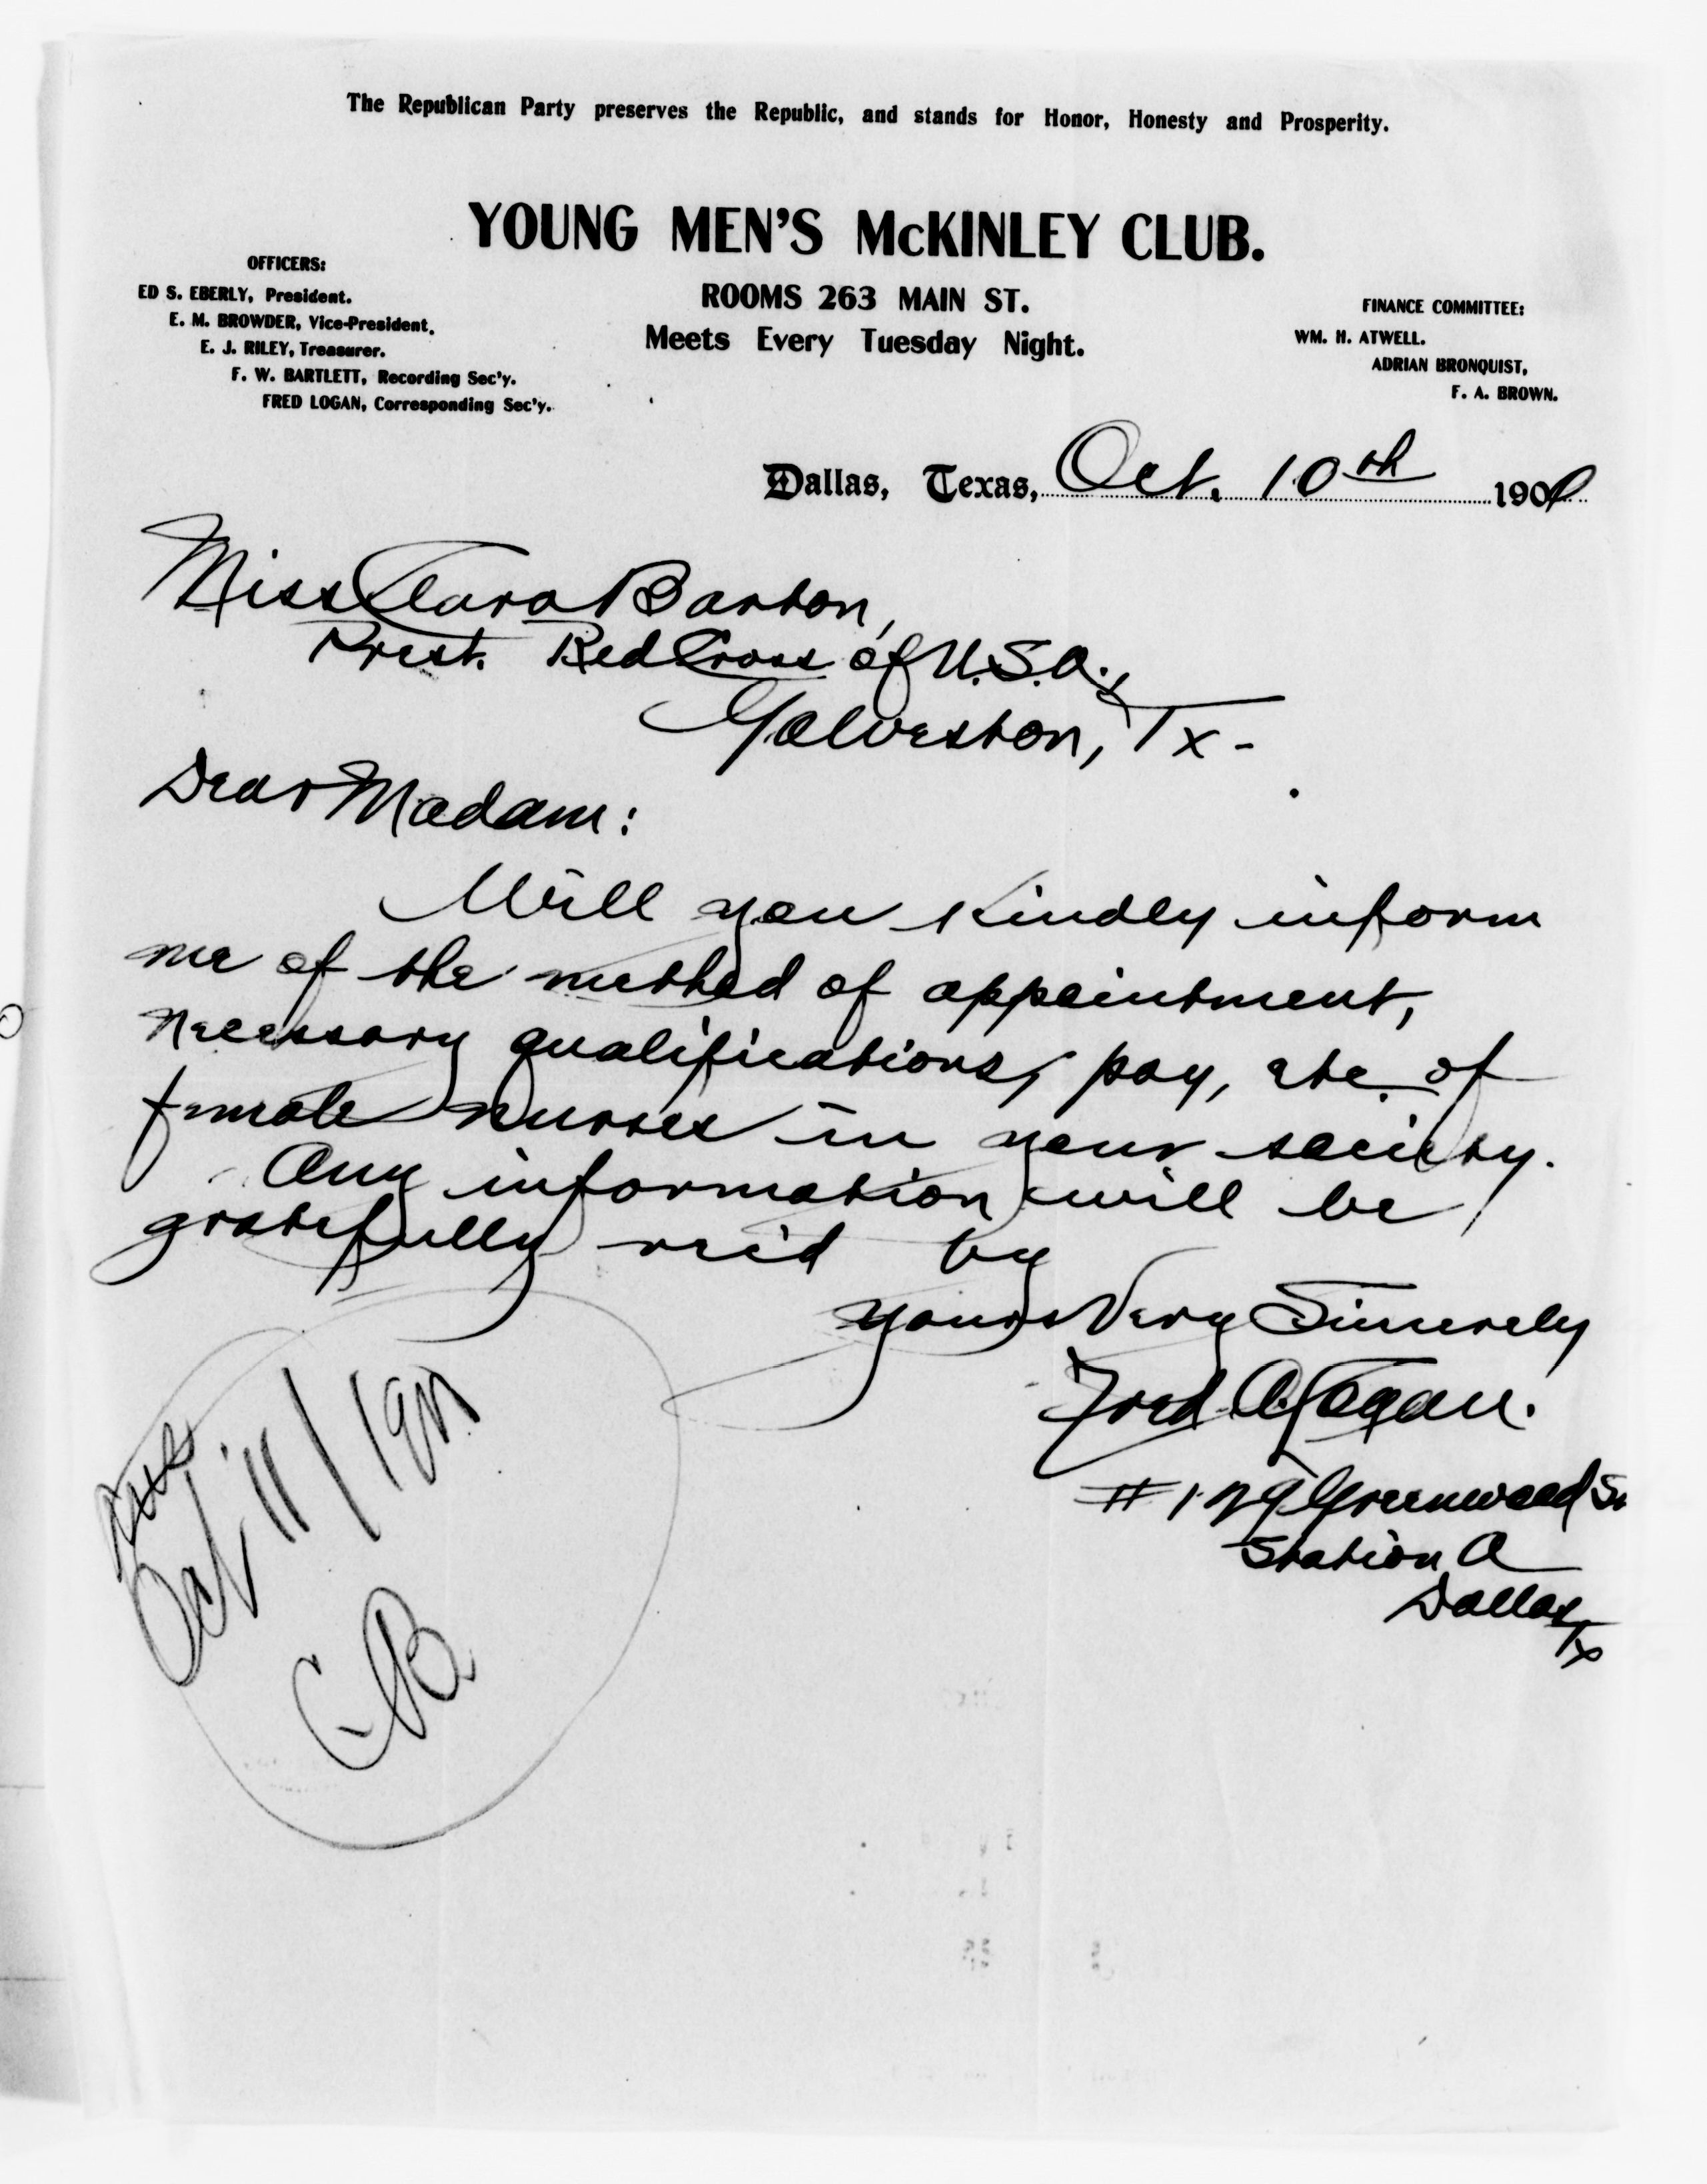 The Republican Party preserves the Republic, and stands for Honor, Honesty and Prosperity.
YOUNG MEN'S McKINLEY CLUB.
ROOMS 263 MAIN ST.
Meets Every Tuesday Night.
OFFICERS:
ED S. EBERLY, President.
E. M. BROWDER, Vice-President.
E. J. RILEY, Treasurer.
F. W. BARTLETT, Recording Sec'y.
FRED LOGAN, Corresponding Sec'y.
FINANCE COMMITTEE:
WM. H. ATWELL.
ADRIAN BRONQUIST,
F. A. BROWN.
Dallas, Texas, Oct. 10th 1900
Miss Clara Barton,
Prest. Red Cross of U.S.A.,
Galveston, Tx-
Dear Madam:
Will you kindly inform
me of the method of appointment,
necessary qualifications, pay, etc. of
female nurses in your society.
Any information will be
gratefully rec'd by
Yours Very Sincerely
Fred A. Logan.
#129 Greenwood St
Station A
Dallas, Tx
Oct 11/1900
CB